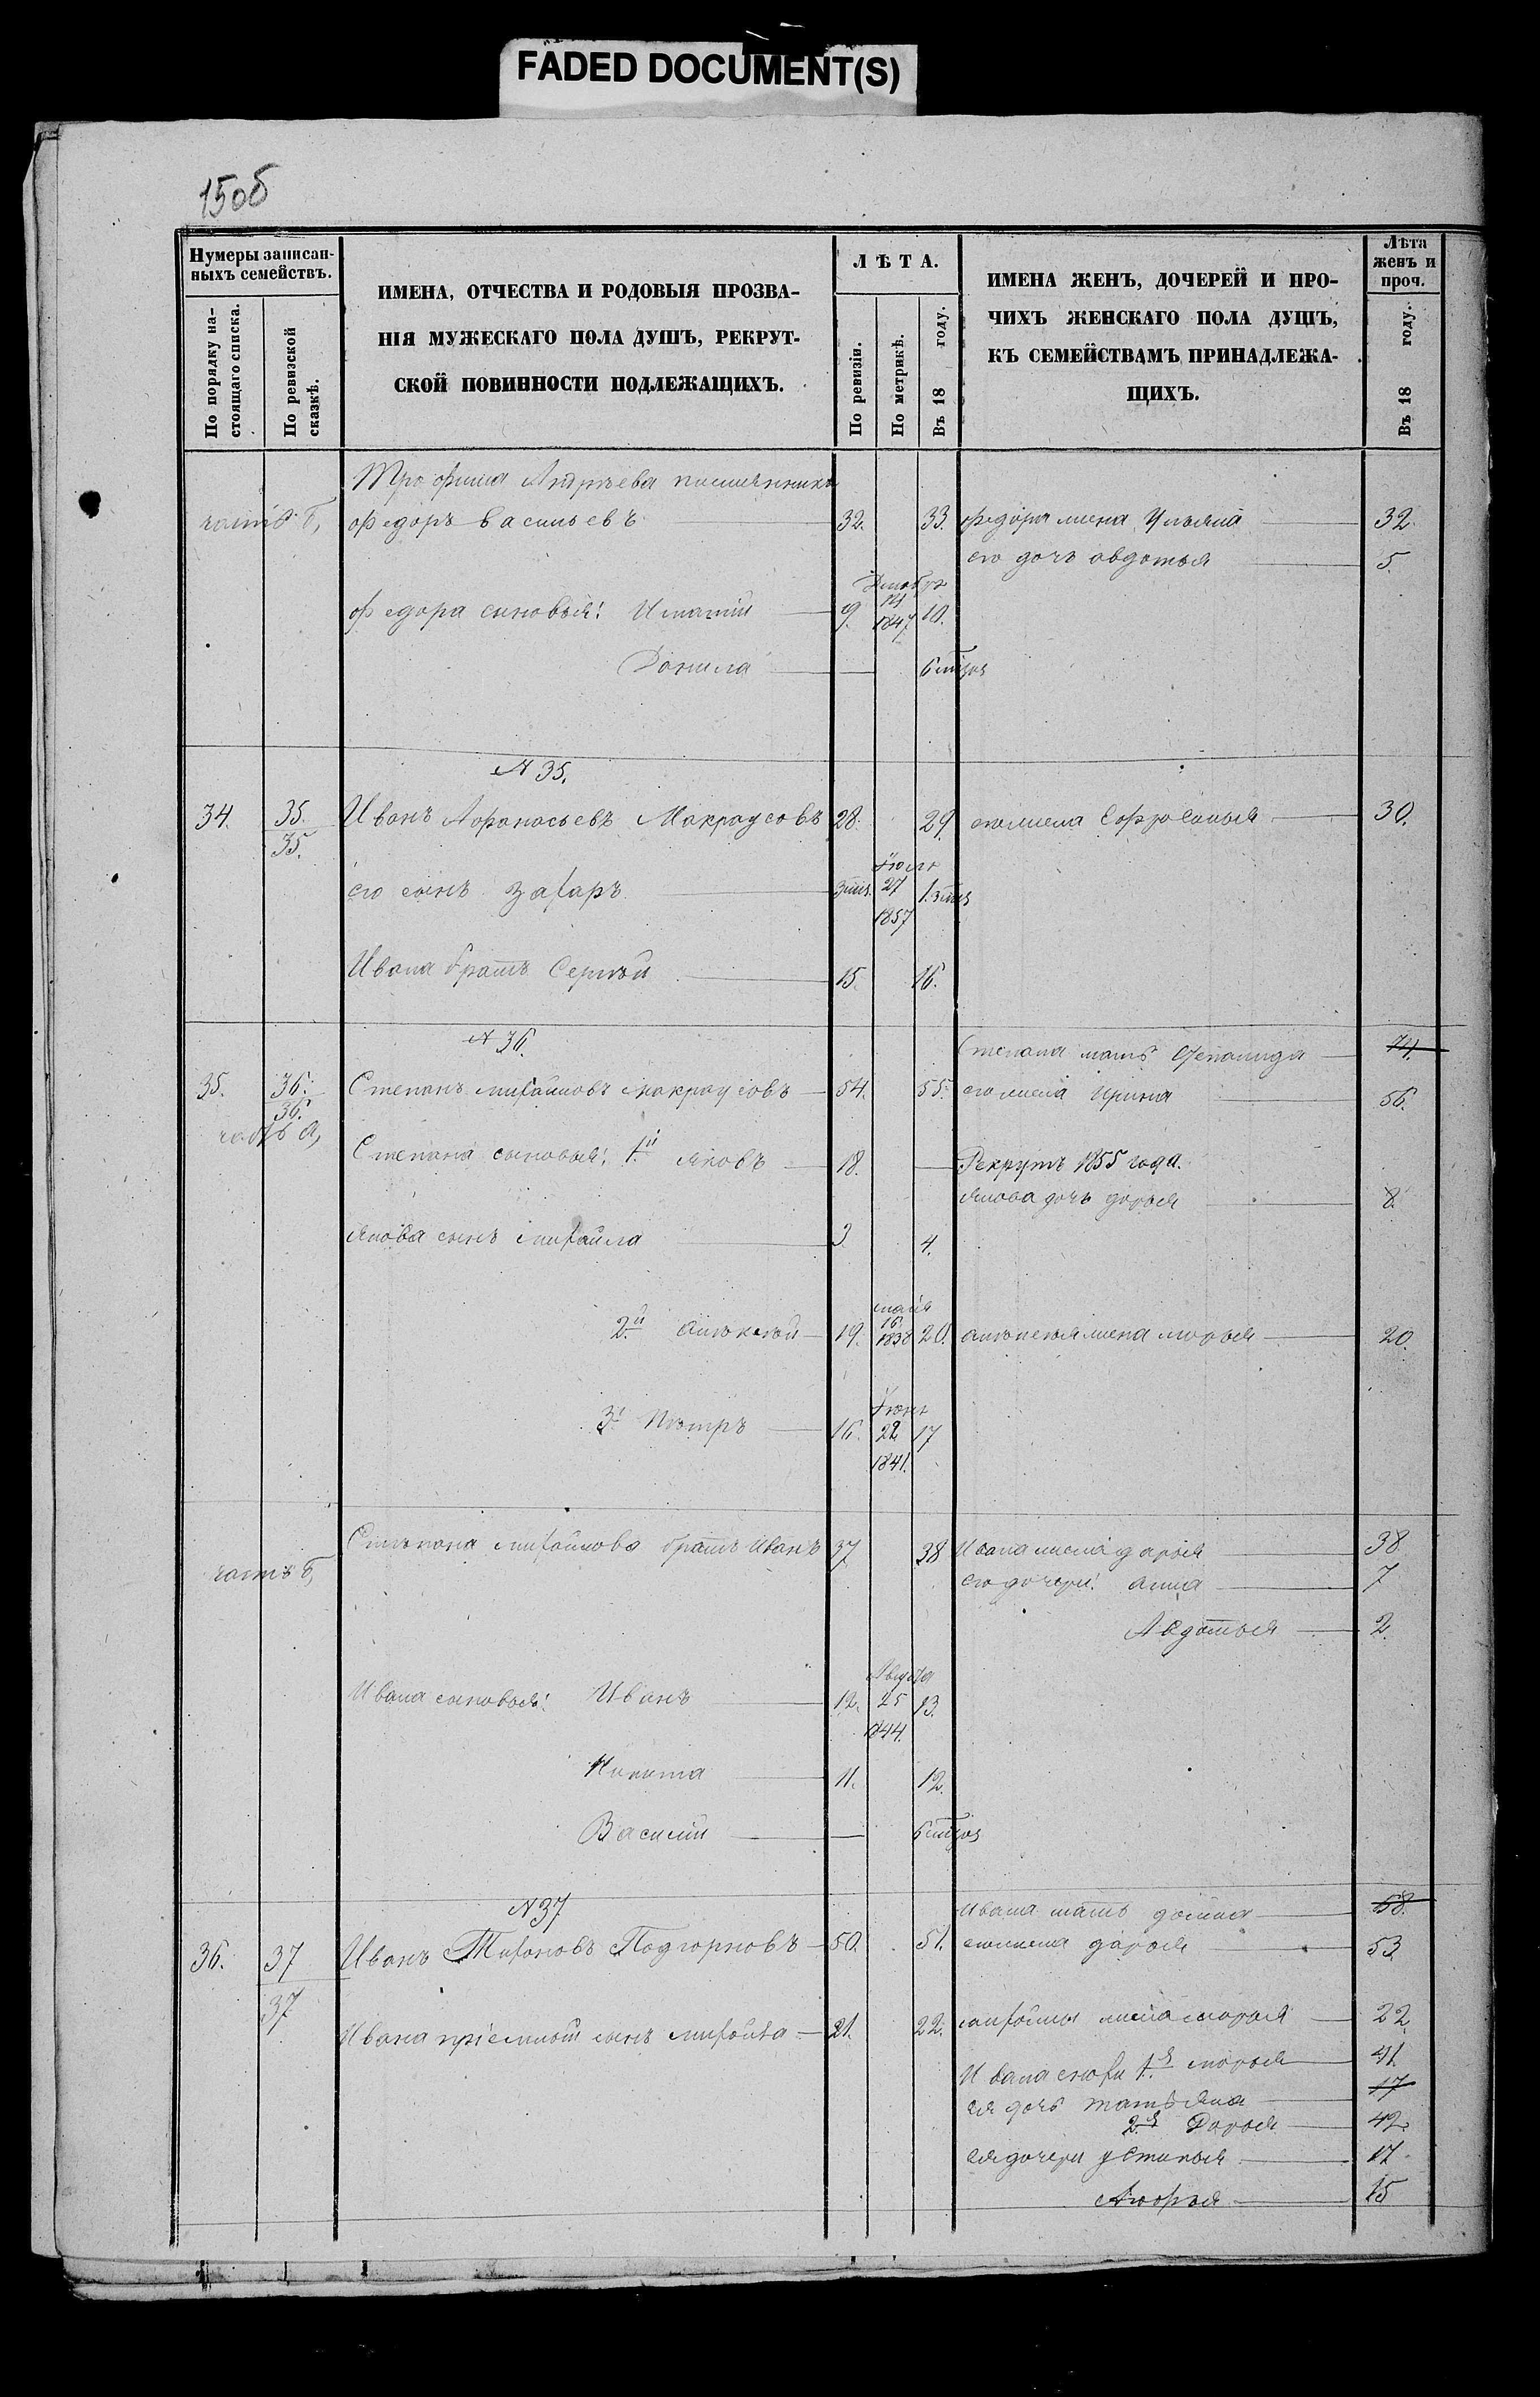 FADED DOCUMENT(S)
150б
Нумеры записан-
ныхъ семействъ.
По порядку на-
стоящаго списка.
По ревизской
сказкѣ.
ИМЕНА, ОТЧЕСТВА И РОДОВЫЯ ПРОЗВА-
НІЯ МУЖЕСКАГО ПОЛА ДУШЪ, РЕКРУТ-
СКОЙ ПОВИННОСТИ ПОДЛЕЖАЩИХЪ.
ЛѢТА.
По ревизіи.
По метрикѣ.
Въ 18 году.
ИМЕНА ЖЕНЪ, ДОЧЕРЕЙ И ПРО-
ЧИХЪ ЖЕНСКАГО ПОЛА ДУШЪ,
КЪ СЕМЕЙСТВАМЪ ПРИНАДЛЕЖА-
ЩИХЪ.
Лѣта
женъ и
проч.
Въ 18 году.
Трофима Андрѣева племянникъ
часть б, федоръ васильевъ 32. 33. федора жена Ульяна 32.
его дочь авдотья 5.
федора сыновья: Игнатій 9. Декабря 14 1847 10.
Данила — 6 мѣсяц
№ 35.
34. 35. 35. Иванъ Афанасьевъ Макраусовъ 28. 29. его жена Ефросинья 30.
его сынъ Захаръ 3 мѣс. Іюля 27 1857 1. 3 мѣс
Ивана братъ Сергѣй 15. 16.
№ 36.
Степана мать 74.
35. 36. 36. Степанъ михайловъ макраусовъ 54. 55. его жена Ирина 56.
часть а, Степана сыновья: 1й яковъ 18. — Рекрутъ 1855 года.
якова дочь дарья 8.
якова сынъ михайла 3 4.
2й алѣксѣй 19. мая 16. 1838 20. алѣксѣя жена марья 20.
3й Пѣтръ 16. Іюня 22 1841. 17
часть б, Стѣпана михайлова братъ Иванъ 37 38 Ивана жена дарья 38
его дочери: анна 7
Авдотья 2.
Ивана сыновья: Иванъ 12. Августа 25 1844. 13.
Никита 11. 12.
Василій — 6 мѣсяц
№ 37
Ивана мать домна 68.
36. 37 37 Иванъ Тихоновъ Подгорновъ 50. 51. его жена дарья 53
Ивана пріемный сынъ михайла 21. 22. михайлы жена марья 22.
Ивана снохи 1я марья 41.
ея дочь татьяна 17
2я Дарья 42.
ея дочери устинья 17
Марья 15